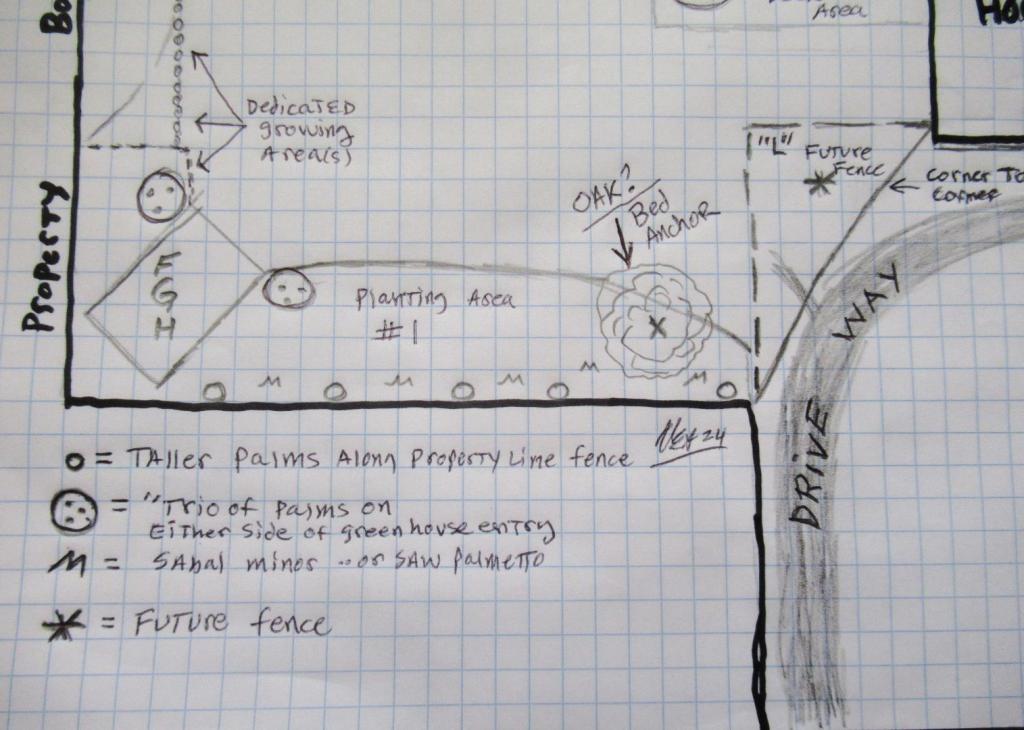 Area
Ho
Bo
DedicATED
growing
Area(s)
"L"
Future
Fence
corner To
corner
OAK?
Bed
Anchor
Property
F
G
H
Planting Area
#1
WAY
DRIVE
= TAller palms Along Property Line fence
= "Trio of palms on
EiTher side of greenhouse entry
= SAbal minor ..or SAW palmetto
= FuTure fence